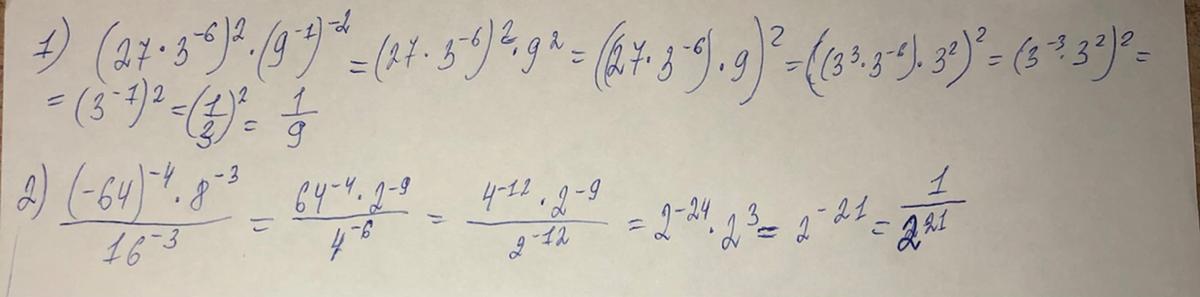 1) (27·3⁻⁶)²·(9⁻¹)⁻² = (27·3⁻⁶)²·9² = ((27·3⁻⁶)·9)² = ((3³·3⁻⁶)·3²)² = (3⁻³·3²)² =
= (3⁻¹)² = (1/3)² = 1/9
2) (-64)⁻⁴·8⁻³ / 16⁻³ = 64⁻⁴·2⁻⁹ / 4⁻⁶ = 4⁻¹²·2⁻⁹ / 2⁻¹² = 2⁻²⁴·2³ = 2⁻²¹ = 1/2²¹